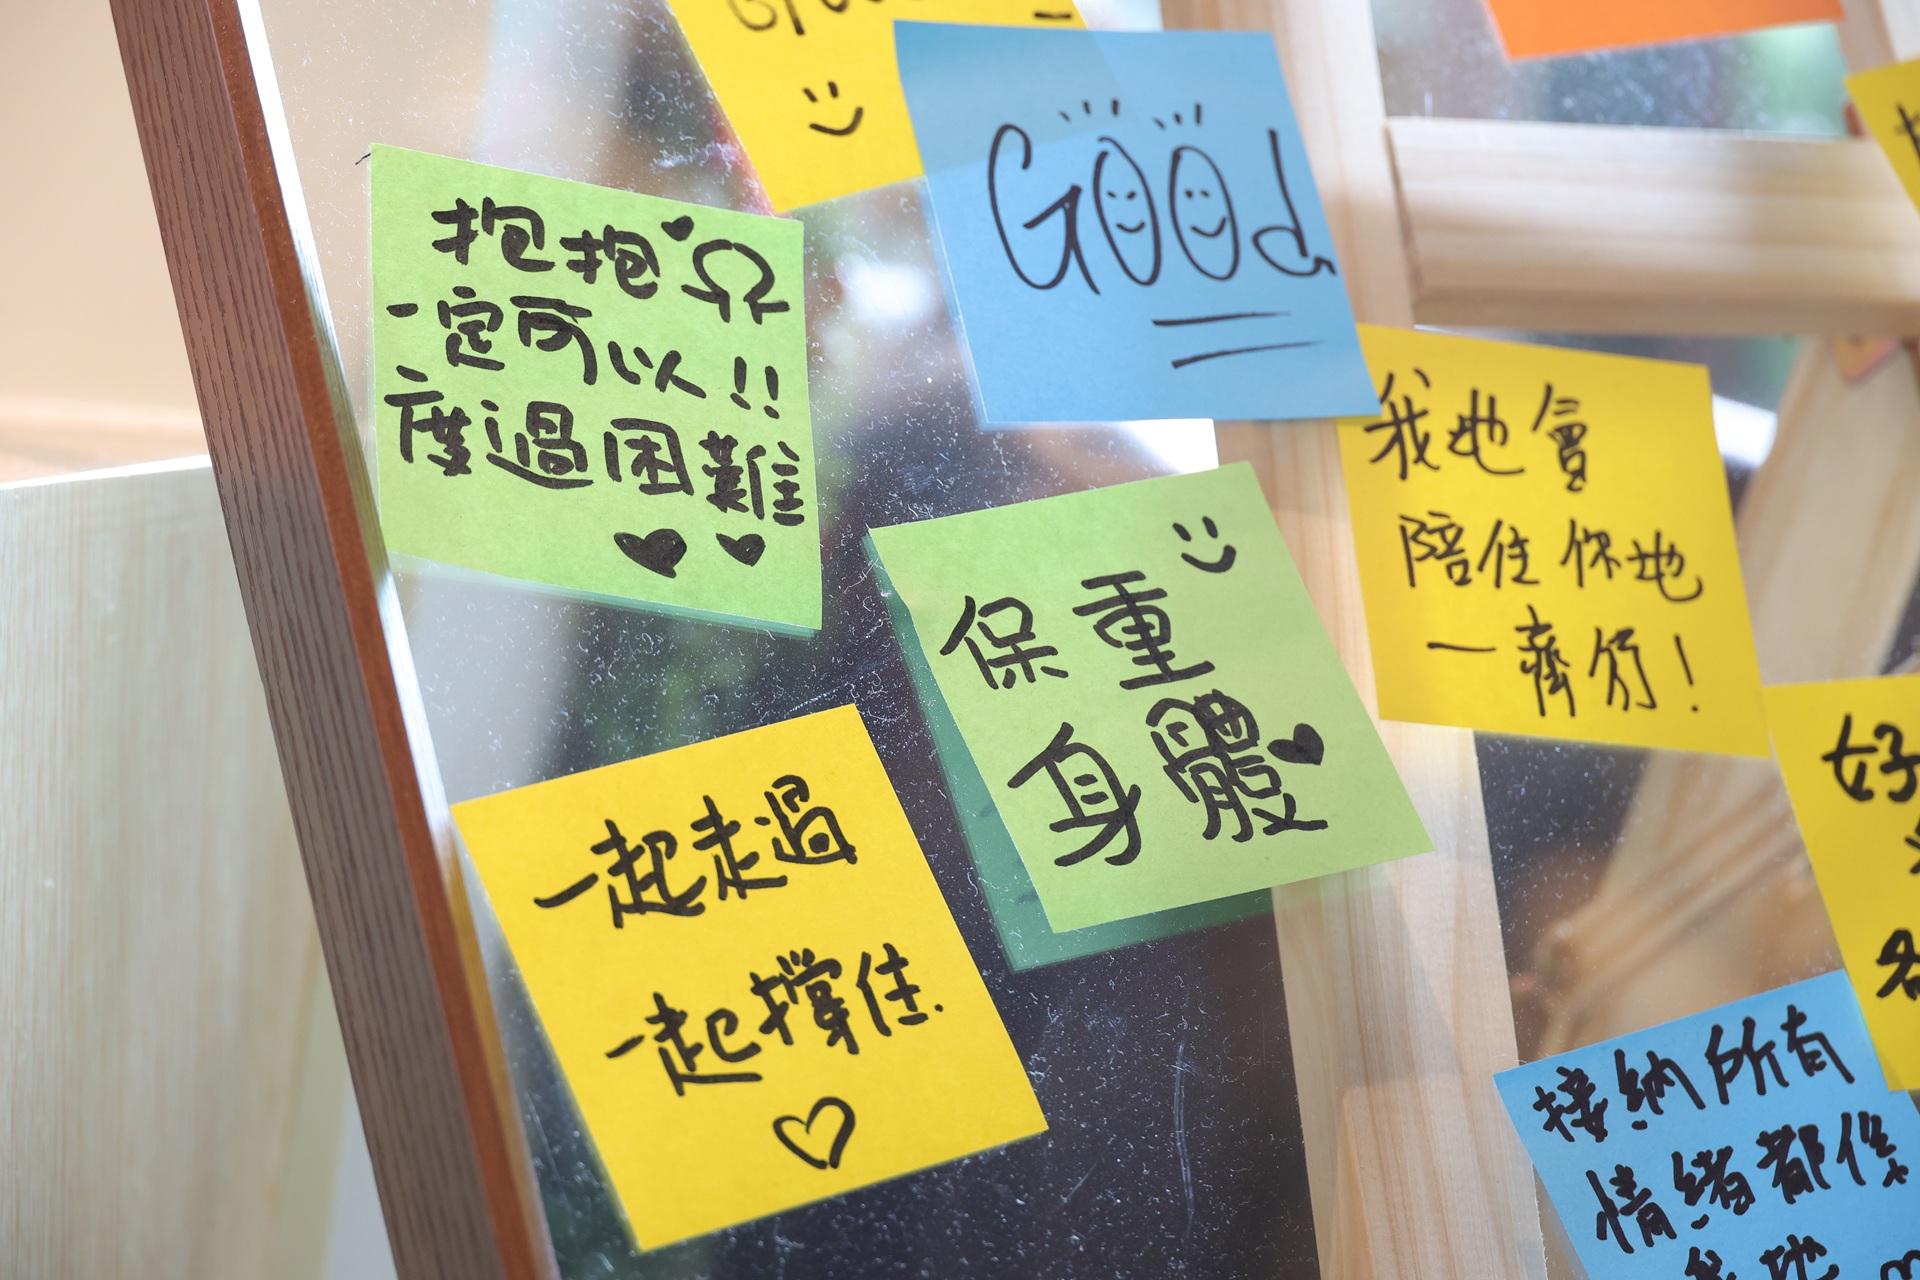 抱抱
一定可以!!
度過困難
Good
我哋會
陪住你哋
一齊行!
保重
身體
一起走過
一起撐住.
接納所有
情緒都係
好
各